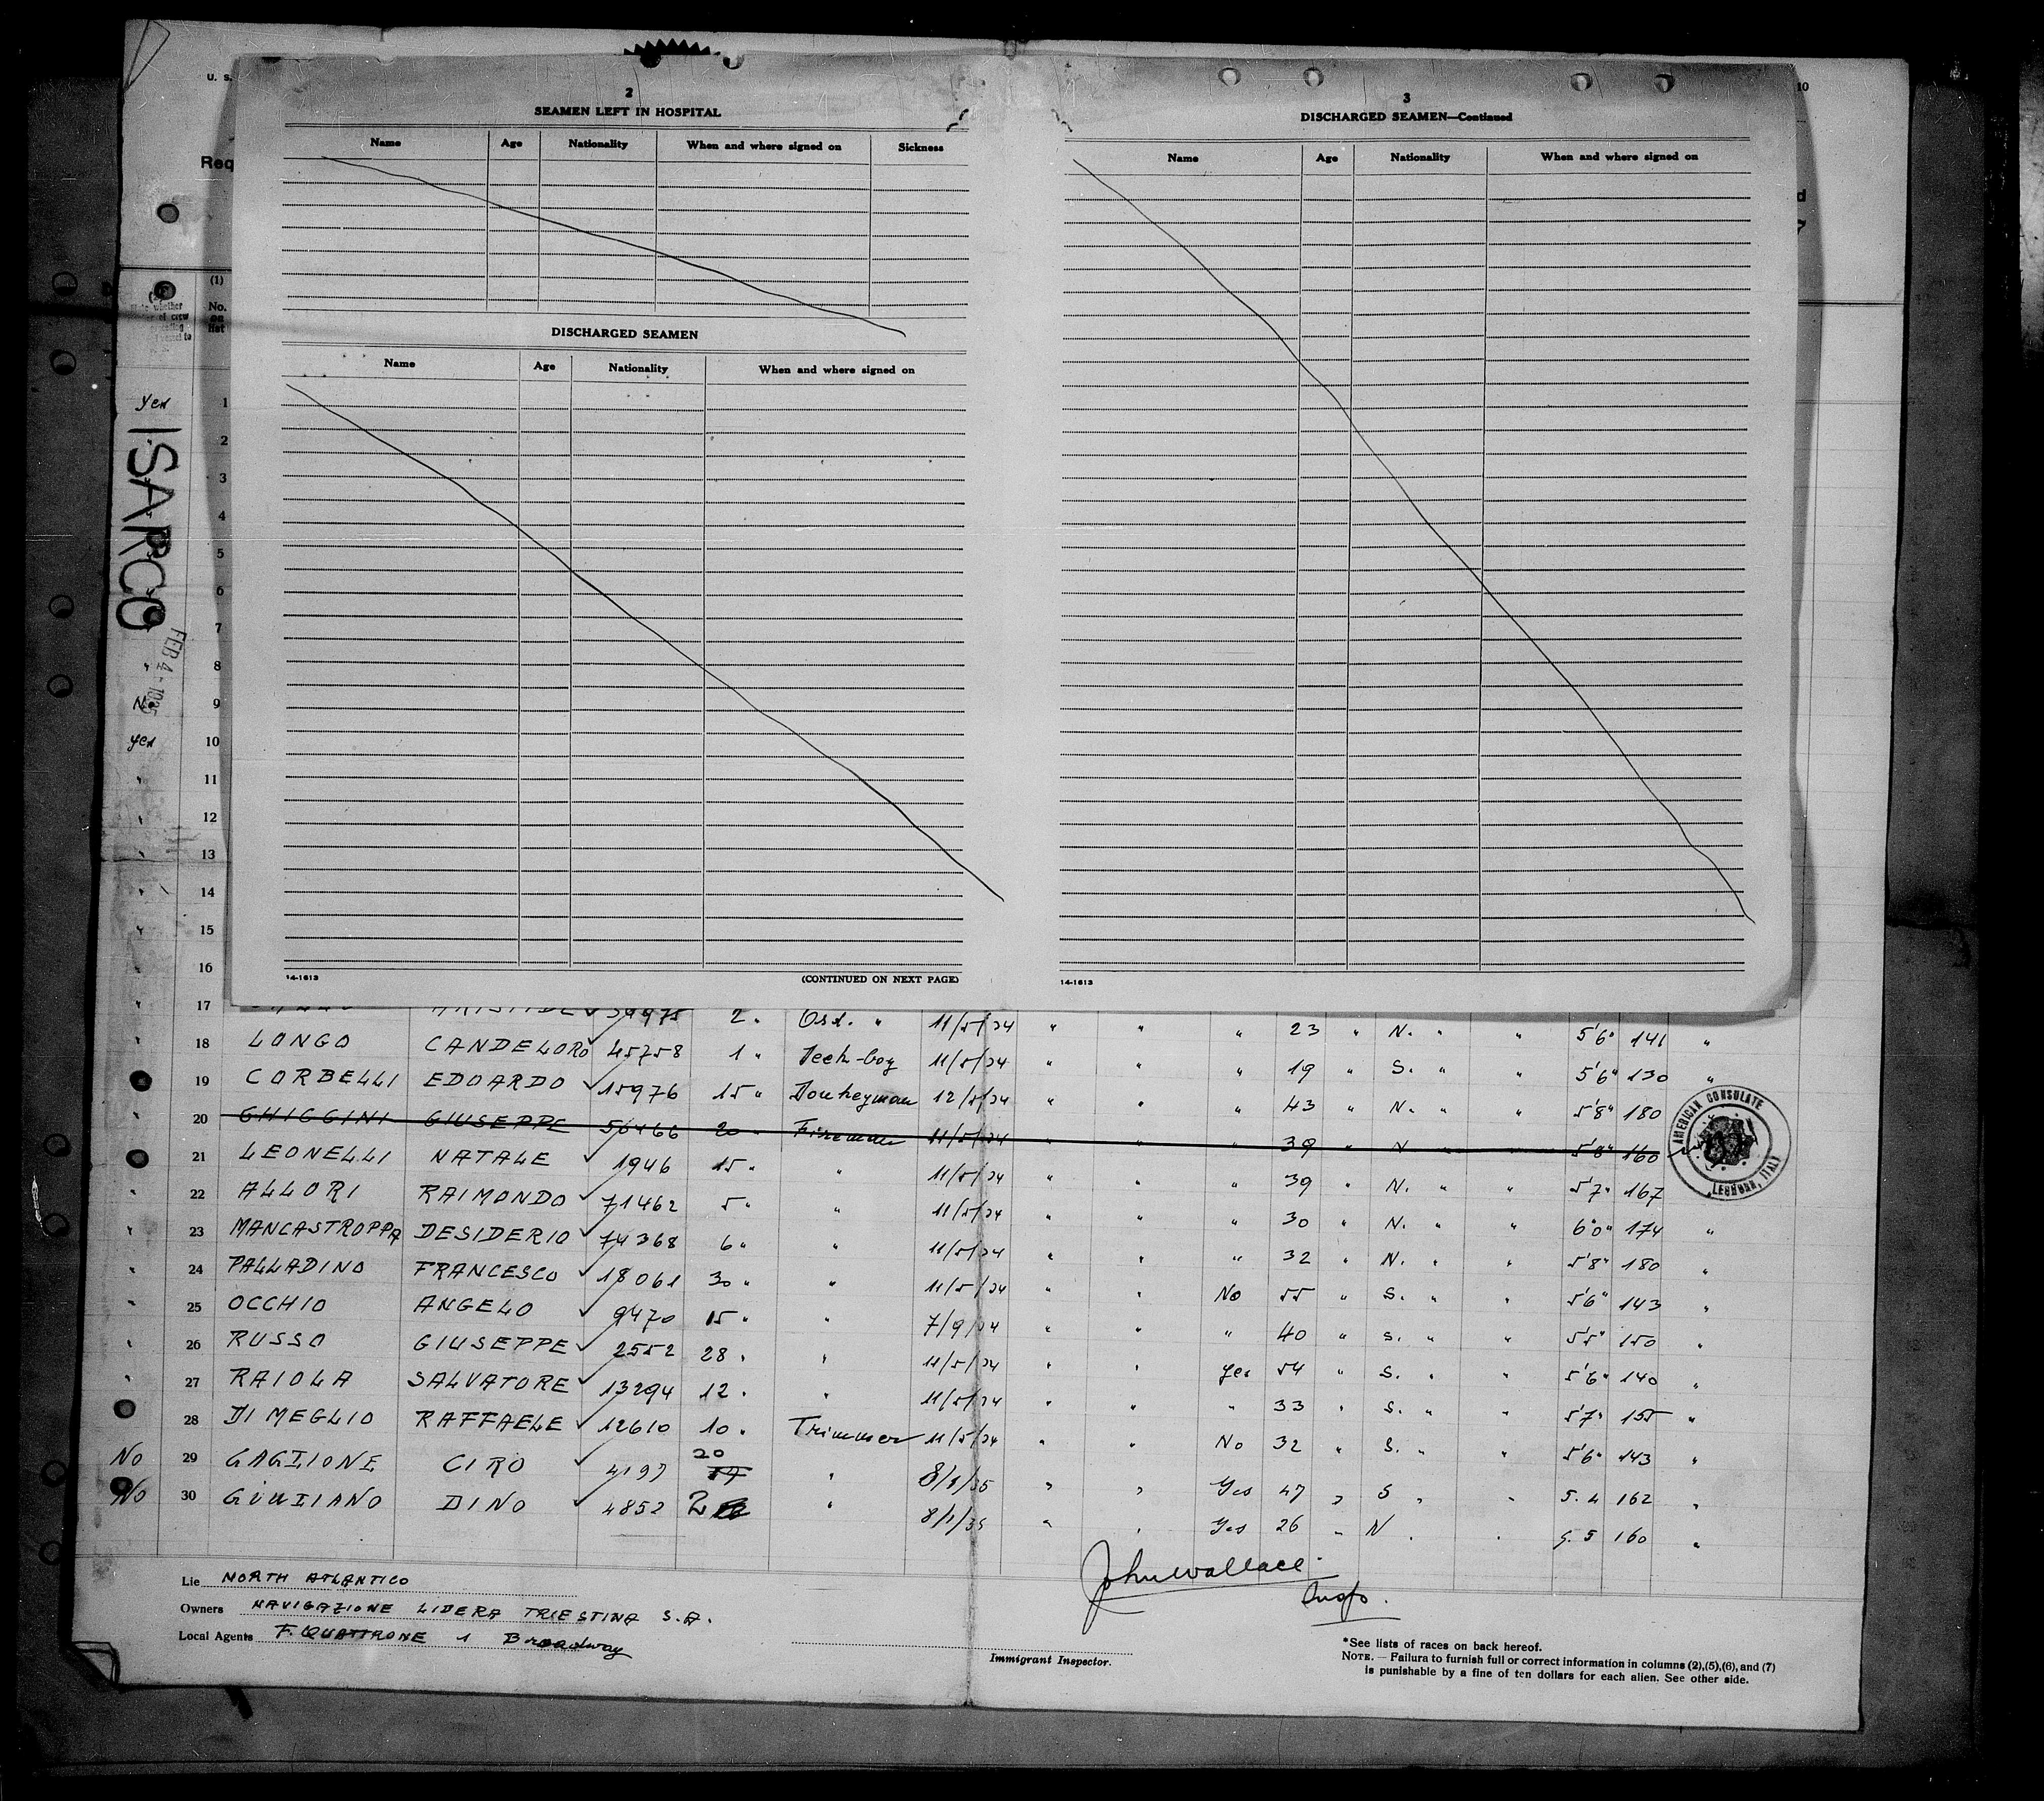 U. S.
10
Req
d
2
SEAMEN LEFT IN HOSPITAL
Name Age Nationality When and where signed on Sickness
DISCHARGED SEAMEN
Name Age Nationality When and where signed on
14-1613 (CONTINUED ON NEXT PAGE)
3
DISCHARGED SEAMEN—Continued
Name Age Nationality When and where signed on
14-1613
(1)
No.
on
list
whether
of crew
to
yes 1
2
3
4
5
6
7
" 8
No 9
yes 10
" 11
" 12
" 13
" 14
" 15
" 16
ISARCO
FEB 4 - 1935
" 17 39975 2 " Osd. " 11/5/34 " " " 23 " N. " " 5'6" 141 "
" 18 LONGO CANDELORO 45758 1 " Deck-boy 11/5/34 " " " 19 " S. " " 5'6" 130 "
19 CORBELLI EDOARDO 15976 15 " Donkeyman 12/5/34 " " " 43 " N. " " 5'8" 180
" 20 GHIGGINI GIUSEPPE 56466 20 " Fireman 11/5/34 " " " 39 " N " " 5'8" 160
21 LEONELLI NATALE 1946 15 " " 11/5/34 " " " 39 " N. " " 5'7" 167
" 22 ALLORI RAIMONDO 71462 5 " " 11/5/34 " " " 30 " N. " " 6'0" 174 "
" 23 MANCASTROPPA DESIDERIO 74368 6 " " 11/5/34 " " " 32 " N. " " 5'8" 180 "
" 24 PALLADINO FRANCESCO 18061 30 " " 11/5/34 " " No 55 " S. " " 5'6" 143 "
" 25 OCCHIO ANGELO 9470 15 " " 7/9/34 " " " 40 " S. " " 5'5" 150 "
" 26 RUSSO GIUSEPPE 2552 28 " " 11/5/34 " " yes 54 " S. " " 5'6" 140 "
" 27 RAIOLA SALVATORE 13294 12 " " 11/5/34 " " " 33 " S. " " 5'7" 155 "
28 DI MEGLIO RAFFAELE 12610 10 " Trimmer 11/5/34 " " No 32 " S. " " 5'6" 143 "
No 29 GAGLIONE CIRO 4197 20 " 8/1/35 " " Yes 47 " S " " 5.4 162 "
No 30 GIULIANO DINO 4852 2 " 8/1/35 " " Yes 26 " N " " 5.5 160 "
AMERICAN CONSULATE
LEGHORN, ITALY
Lie NORTH ATLANTICO
Owners NAVIGAZIONE LIBERA TRIESTINA S.A.
Local Agents F. QUATTRONE 1 Broadway
John Wallace
Insp.
Immigrant Inspector.
*See lists of races on back hereof.
NOTE. — Failura to furnish full or correct information in columns (2),(5),(6), and (7)
is punishable by a fine of ten dollars for each alien. See other side.